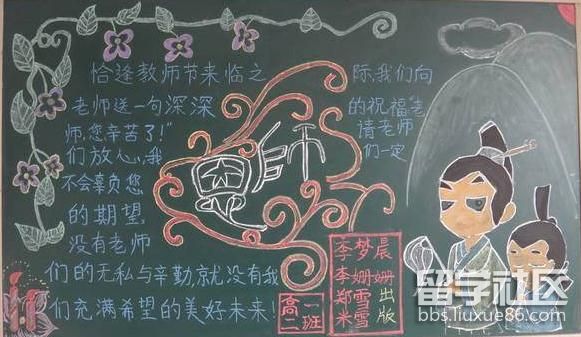 恰逢教师节来临之际,我们向
老师送一句深深的祝福"老
师,您辛苦了!"请老师
们放心,我们一定
不会辜负您
的期望,
没有老师
们的无私与辛勤,就没有我
们充满希望的美好未来!
恩师
李梦晨
李姗姗
郑雪
米雪
出版
高一
二班
留学社区
bbs.liuxue86.com